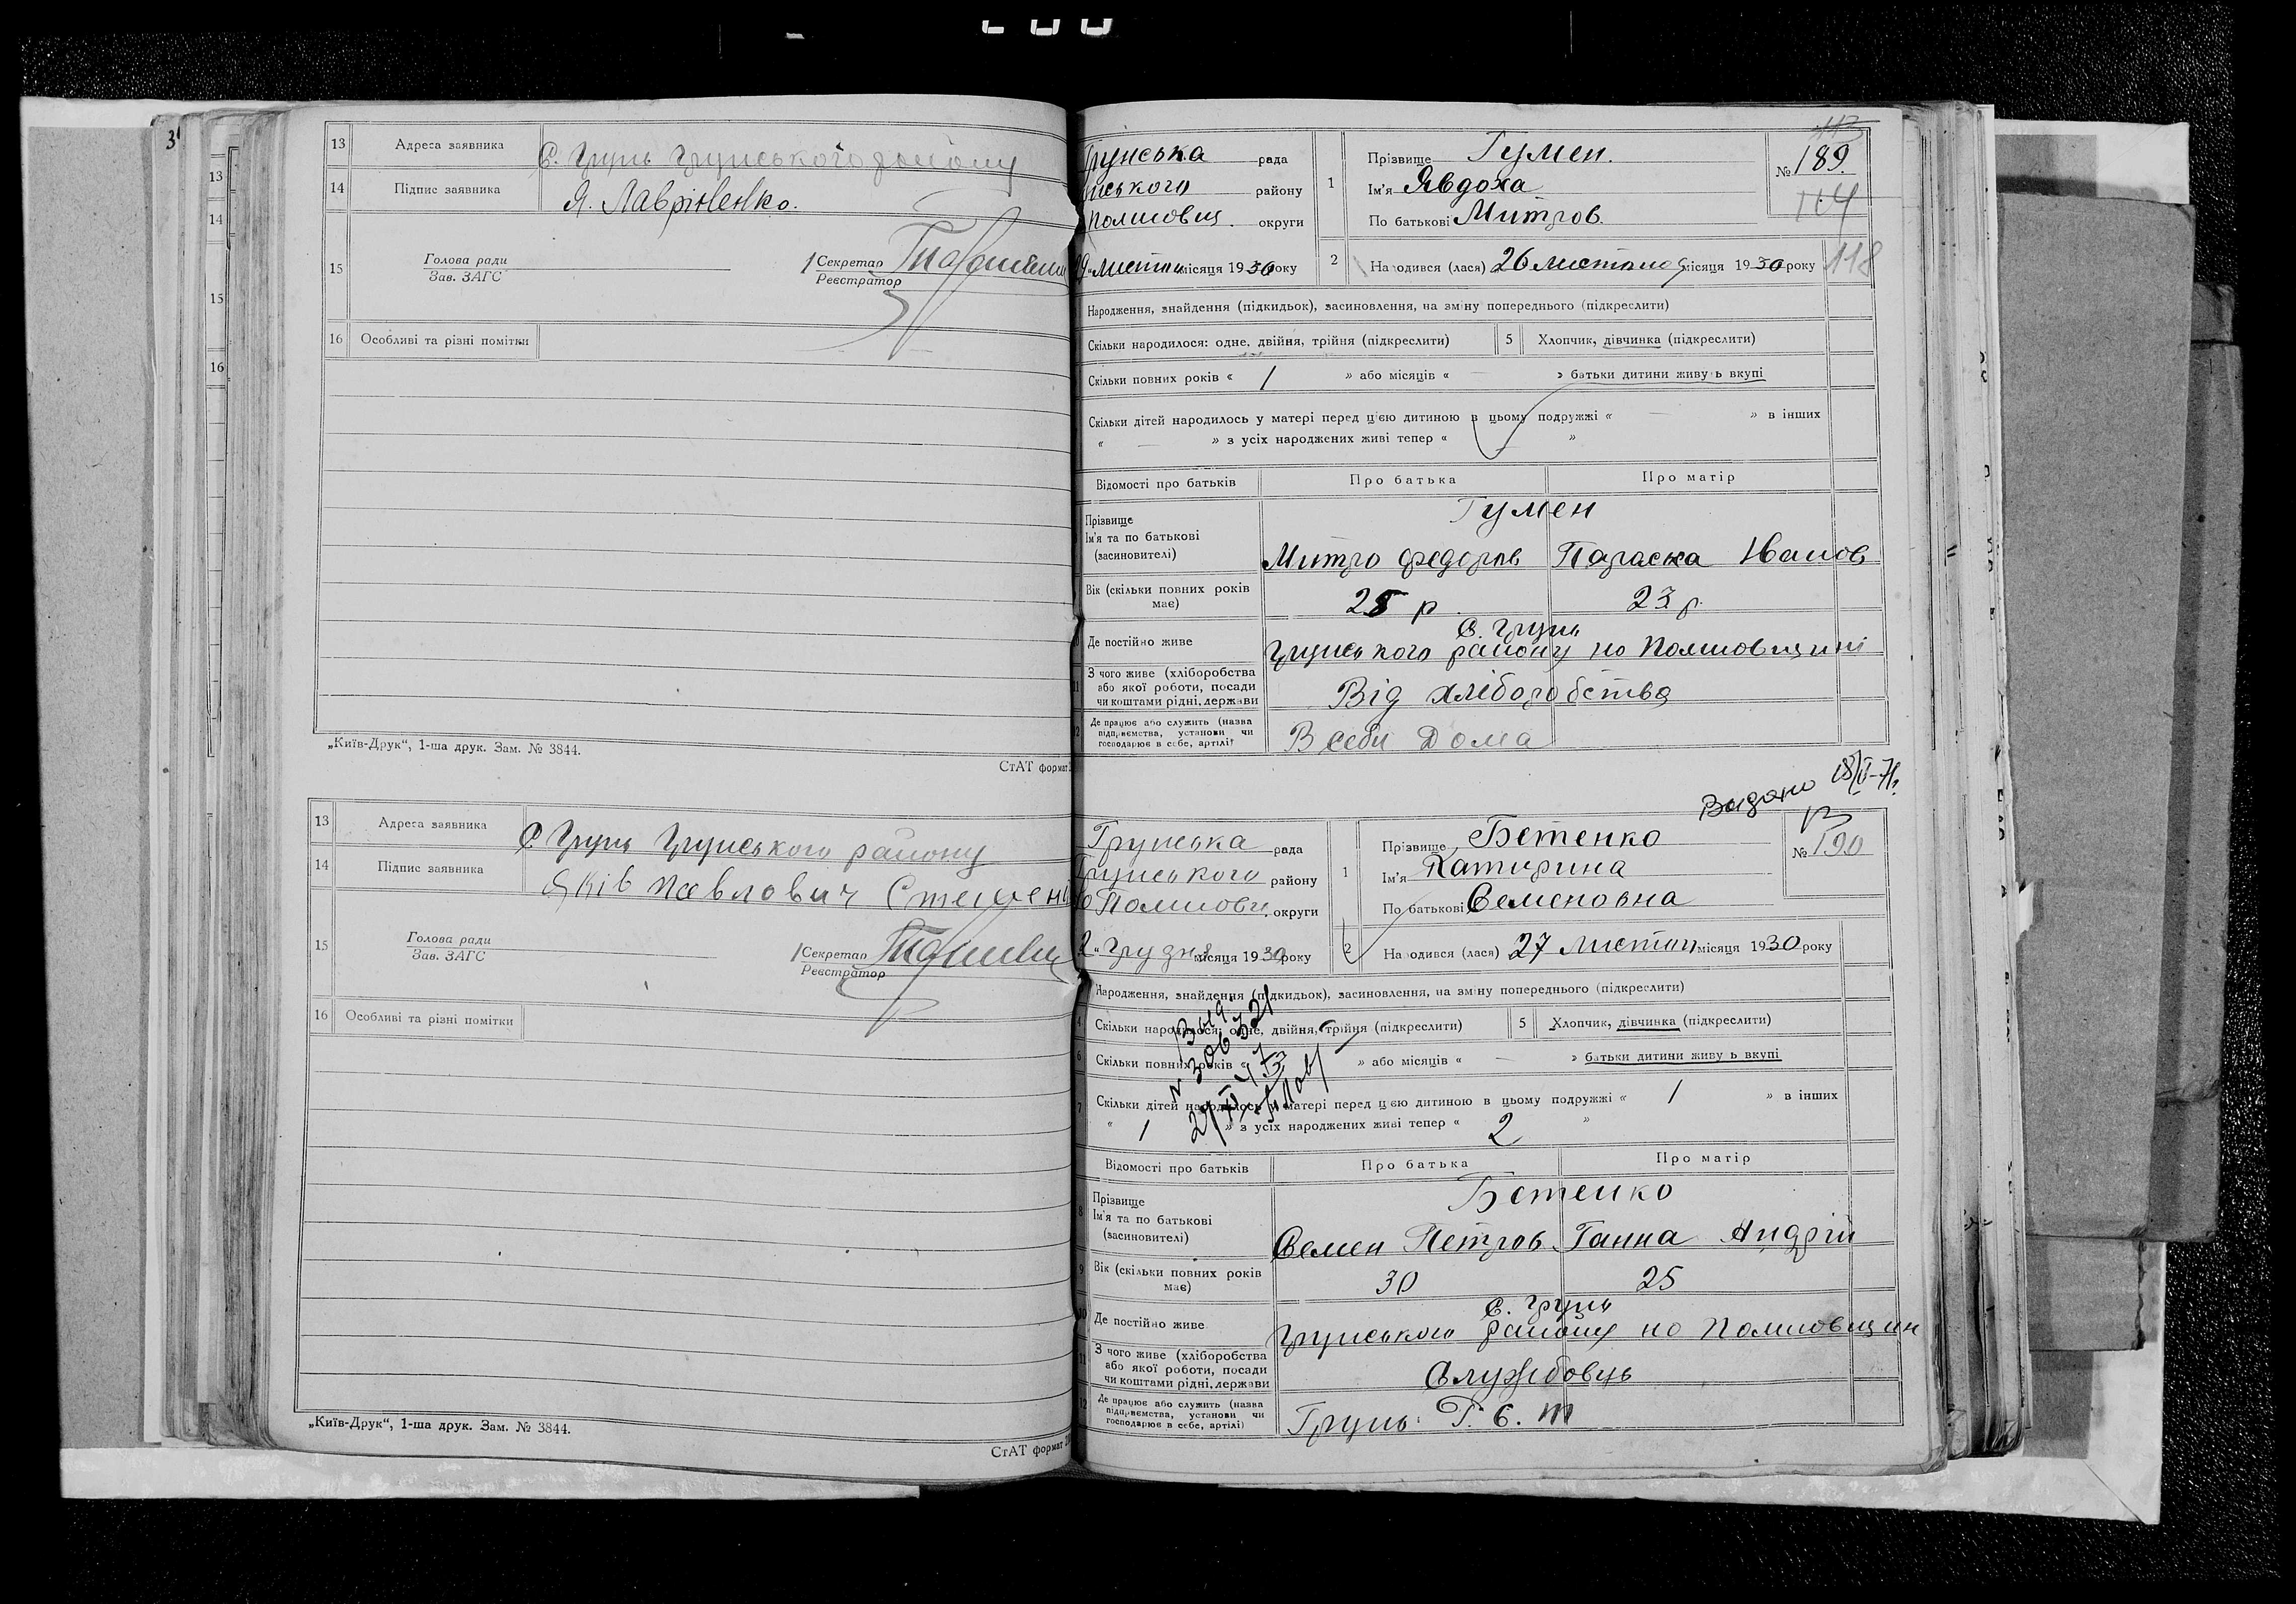 13 Адреса заявника С. Грунь Грунського району
14 Підпис заявника Я. Лавріненко.
15 Голова ради
Зав. ЗАГС
Секретар
Реєстратор
16 Особливі та різні помітки
„Київ-Друк“, 1-ша друк. Зам. № 3844.
СтАТ формат
13 Адреса заявника С Грунь Грунського району
14 Підпис заявника Яків Павлович
15 Голова ради
Зав. ЗАГС
Секретар
Реєстратор
16 Особливі та різні помітки
„Київ-Друк“, 1-ша друк. Зам. № 3844.
СтАТ формат
113
Грунська рада
району
округи
місяця 1930 року
1 Прізвище Гумен.
Ім'я Явдоха
По батькові Митров.
№ 189.
104
2 Народився (лася) 26 листопад місяця 1930 року
118
Народження, знайдення (підкидьок), засиновлення, на зміну попереднього (підкреслити)
Скільки народилося: одне, двійня, трійня (підкреслити) 5 Хлопчик, дівчинка (підкреслити)
Скільки повних років « 1 » або місяців « — » батьки дитини живуть вкупі
Скільки дітей народилось у матері перед цією дитиною в цьому подружжі « — » в інших
« — » з усіх народжених живі тепер « »
Відомості про батьків Про батька Про матір
Прізвище
Ім'я та по батькові
(засиновителі)
Гумен
Митро Федоров Параска Іванов
Вік (скільки повних років має) 25 р. 23 р.
Де постійно живе С. Грунь
Грунського району на
З чого живе (хліборобства
або якої роботи, посади
чи коштами рідні, держави
Від хліборобства
Де працює або служить (назва
підприємства, установи чи
господарює в себе, артілі)
В себи Дома
Видано
Грунська рада
Грунського району
округи
2 „ Грудня місяця 1930 року
1 Прізвище Бетенко
Ім'я Катирина
По батькові Семеновна
№ 190
2 Народився (лася) 27 листоп місяця 1930 року
Народження, знайдення (підкидьок), засиновлення, на зміну попереднього (підкреслити)
4 Скільки народилося: одне, двійня, трійня (підкреслити) 5 Хлопчик, дівчинка (підкреслити)
6 Скільки повних років « » або місяців « — » батьки дитини живуть вкупі
7 Скільки дітей народилось у матері перед цією дитиною в цьому подружжі « 1 » в інших
« 1 » з усіх народжених живі тепер « 2 »
Відомості про батьків Про батька Про матір
8 Прізвище
Ім'я та по батькові
(засиновителі)
Бетенко
Семен Петров. Ганна Андрій
9 Вік (скільки повних років має) 30 25
10 Де постійно живе С. Грунь
Грунського району на
11 З чого живе (хліборобства
або якої роботи, посади
чи коштами рідні, держави
Службовць
12 Де працює або служить (назва
підприємства, установи чи
господарює в себе, артілі)
Грунь